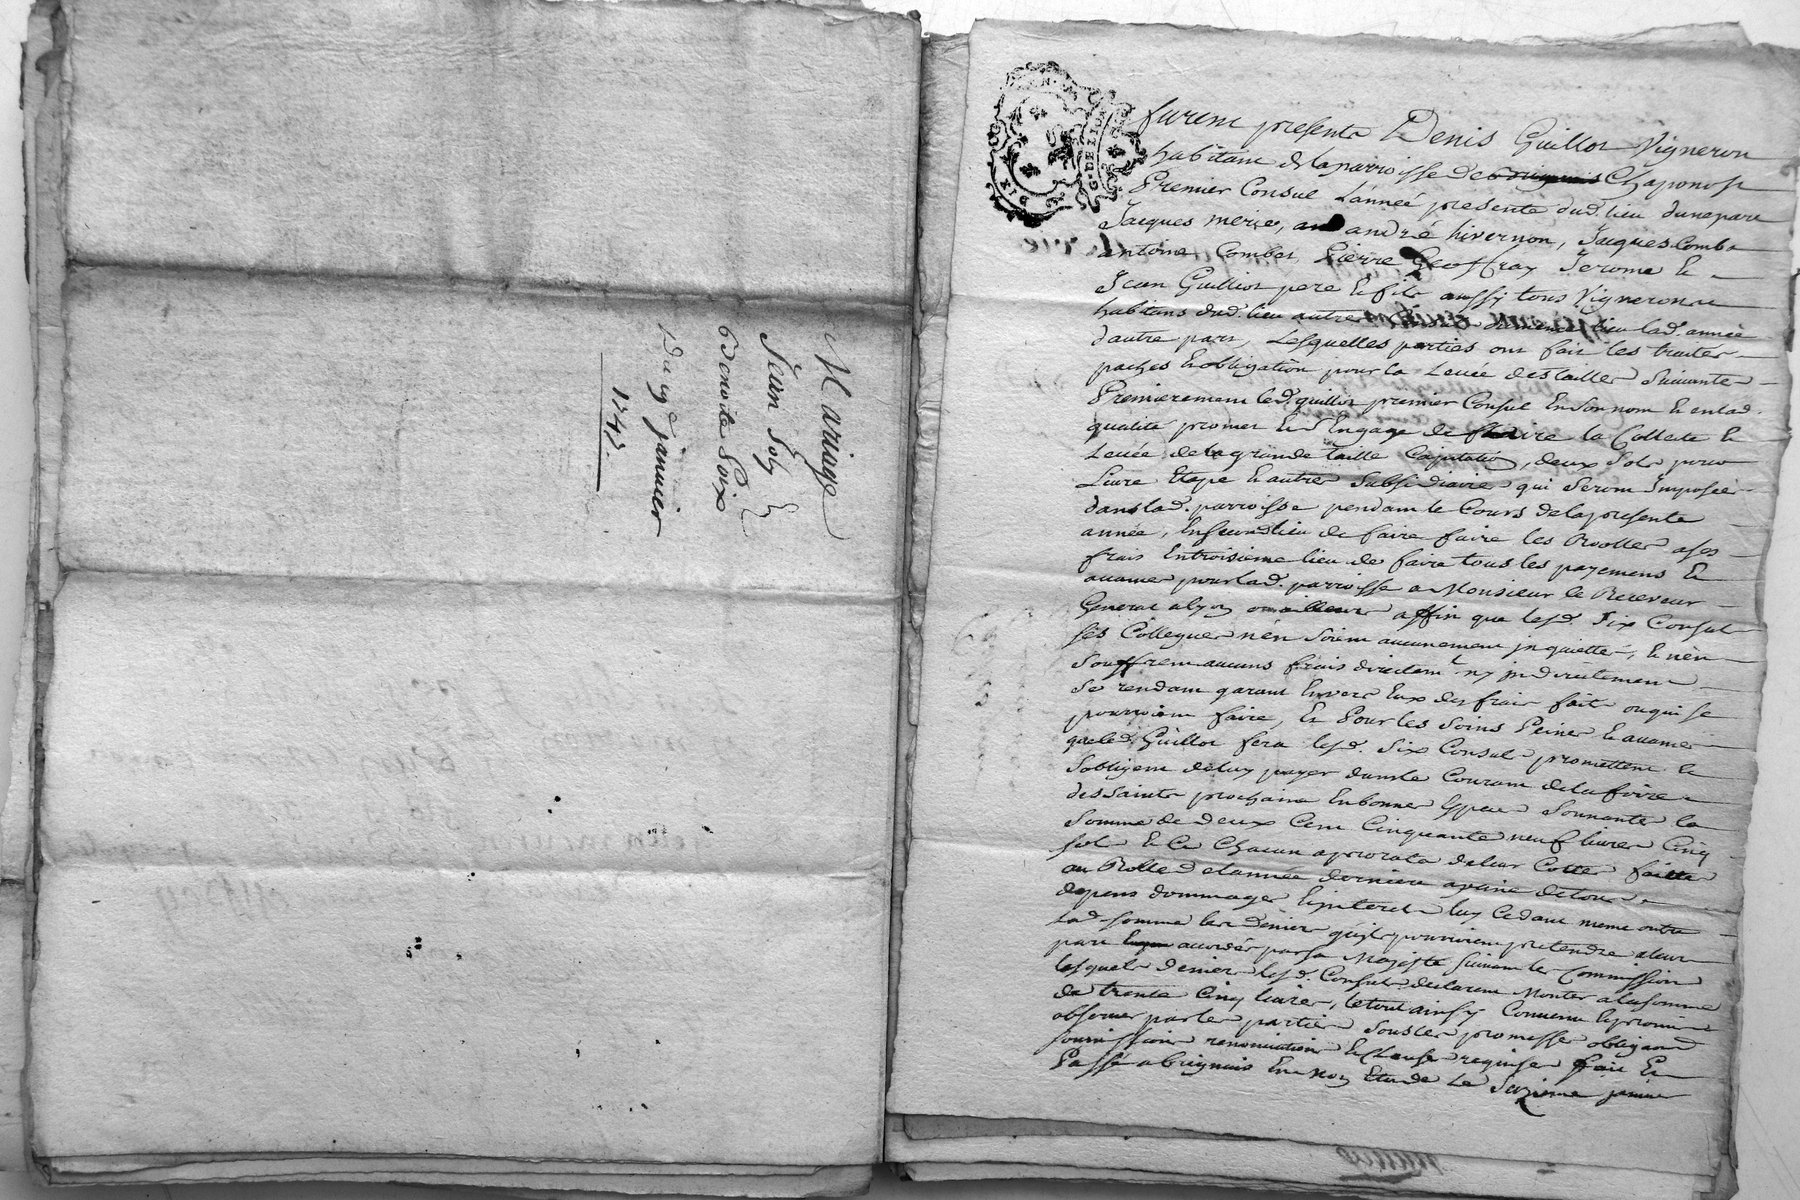 Mariage
Jean Joly &
benoite Poix
Du 9e janvier
1743.
furent presents Denis Guillot Vigneron
habitant de la parroisse de Chaponost
Premier Consul L'année presente dud. lieu d'une part
Jacques mercie, andré hivernon, Jacques Combe
antoine Combet, Pierre Geoffray Jerome &
Jean Guillot pere & fils aussy tous Vignerons
habitans dud. lieu autres lad. année
d'autre part, Lesquelles parties ont fait les traites
paches & obligation pour la Levée des tailles Suivante
Premierement led. guillot premier Consul En son nom & en lad.
qualité promet & s'Engage de faire la Collecte &
Levée de la grande taille Capitation, deux Sols pour
Livre Etape & autres Subsidiaires qui seront Imposées
dans lad. parroisse pendant le Cours de la presente
année, En second lieu de faire faire les Roolles a ses
frais En troisieme lieu de faire tous les payemens &
avances pour lad. parroisse a Monsieur le Receveur
General a lyon ou ailleurs affin que lesd. Six Consuls
ses Collegues n'en Soient aucunement jnquiettés, & n'en
Souffrent aucuns frais directemt. ny jndirectement
Se rendant garant Envers Eux des frais faits ou qui se
pourroient faire, Et Pour les Soins Peines & avances
que led. Guillot fera lesd. Six Consuls promettent &
s'obligent de luy payer dans le Courant de la foire
des Saints prochaine En bonnes Especes Sonnantes la
Somme de deux Cent Cinquante neuf livres Cinq
sols & Ce Chacun a prorata de leur Cotte faitte
au Rolle de l'année derniere a peine de tous
depens dommages & jnterets luy Cedant meme outre
lad. somme les deniers qu'ils pourroient pretendre a leur
part accordés par sa Majesté suivant les Commission
lesquels deniers lesd. Consuls declarent Monter a la somme
de trente Cinq livres, le tout ainsy Convenu & promis
observer par les parties Sous les promesses obligaons
soumissions renonciations & Clauses requises fait &
Passé a brignais En mon Etude Le Seizieme janvier